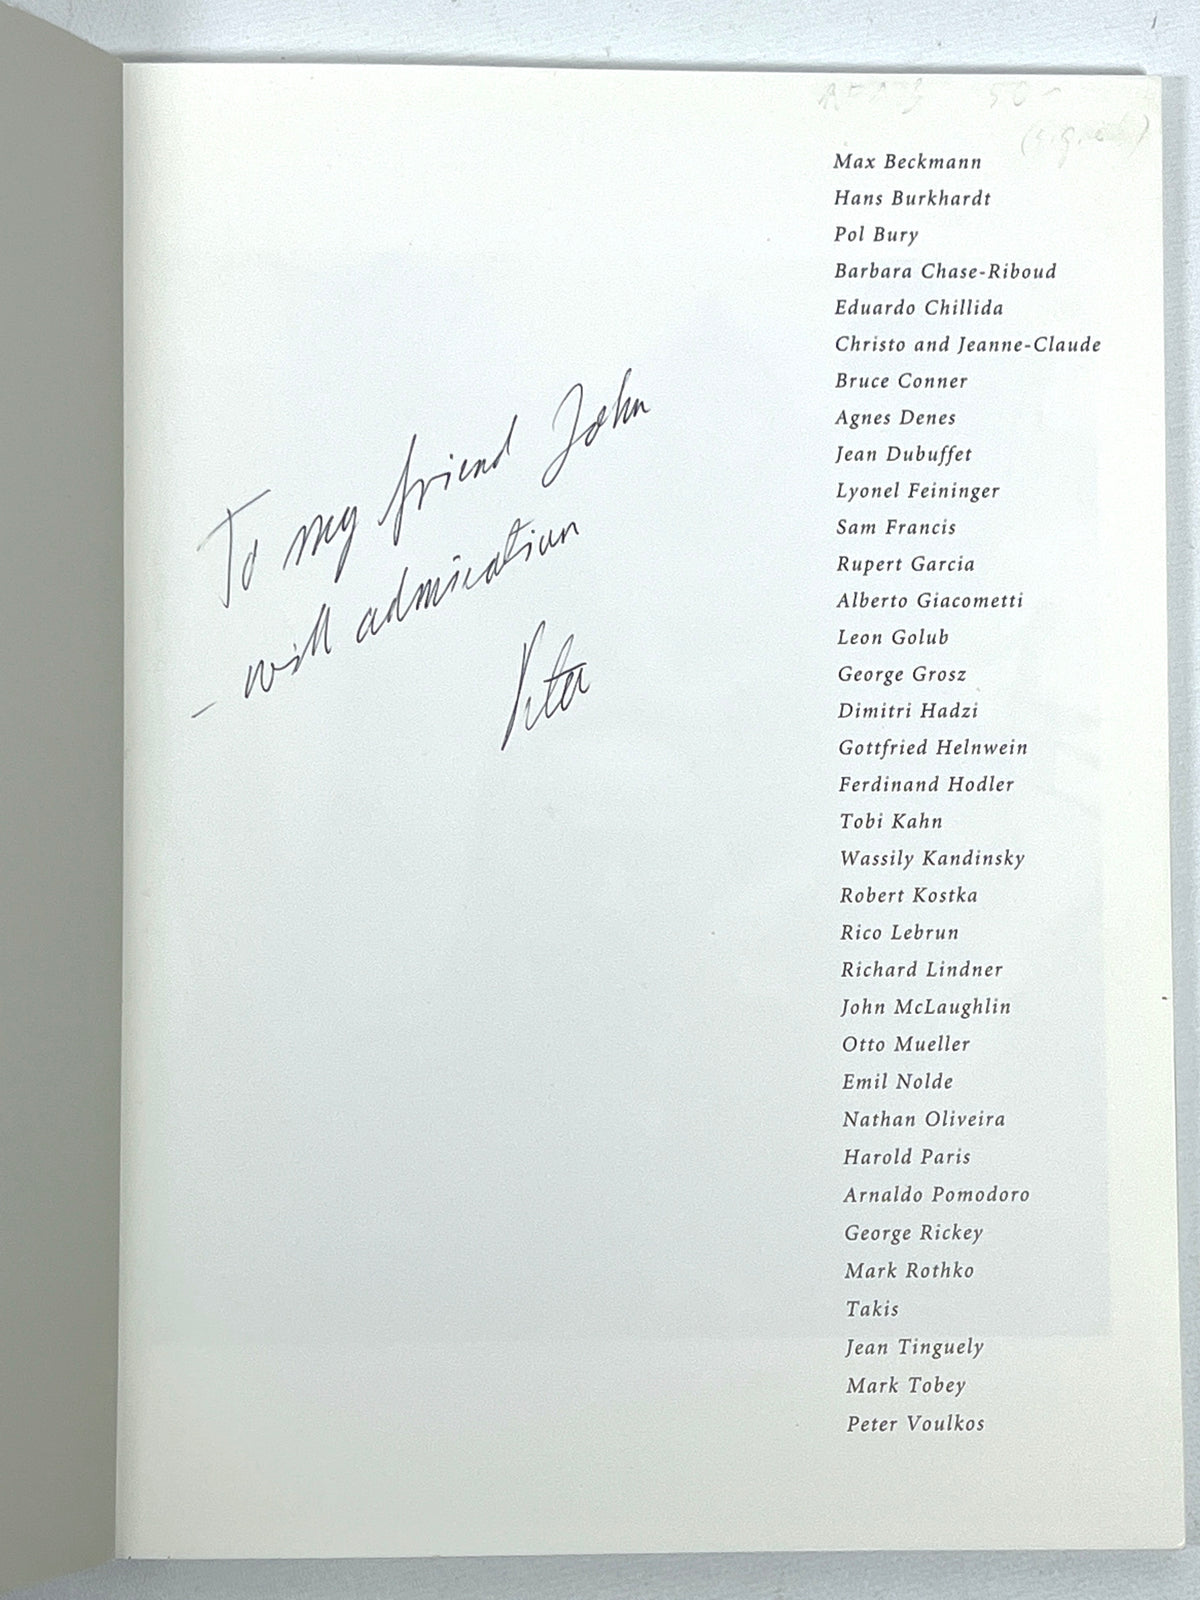 To my friend John
- with admiration
Peter
Max Beckmann
Hans Burkhardt
Pol Bury
Barbara Chase-Riboud
Eduardo Chillida
Christo and Jeanne-Claude
Bruce Conner
Agnes Denes
Jean Dubuffet
Lyonel Feininger
Sam Francis
Rupert Garcia
Alberto Giacometti
Leon Golub
George Grosz
Dimitri Hadzi
Gottfried Helnwein
Ferdinand Hodler
Tobi Kahn
Wassily Kandinsky
Robert Kostka
Rico Lebrun
Richard Lindner
John McLaughlin
Otto Mueller
Emil Nolde
Nathan Oliveira
Harold Paris
Arnaldo Pomodoro
George Rickey
Mark Rothko
Takis
Jean Tinguely
Mark Tobey
Peter Voulkos